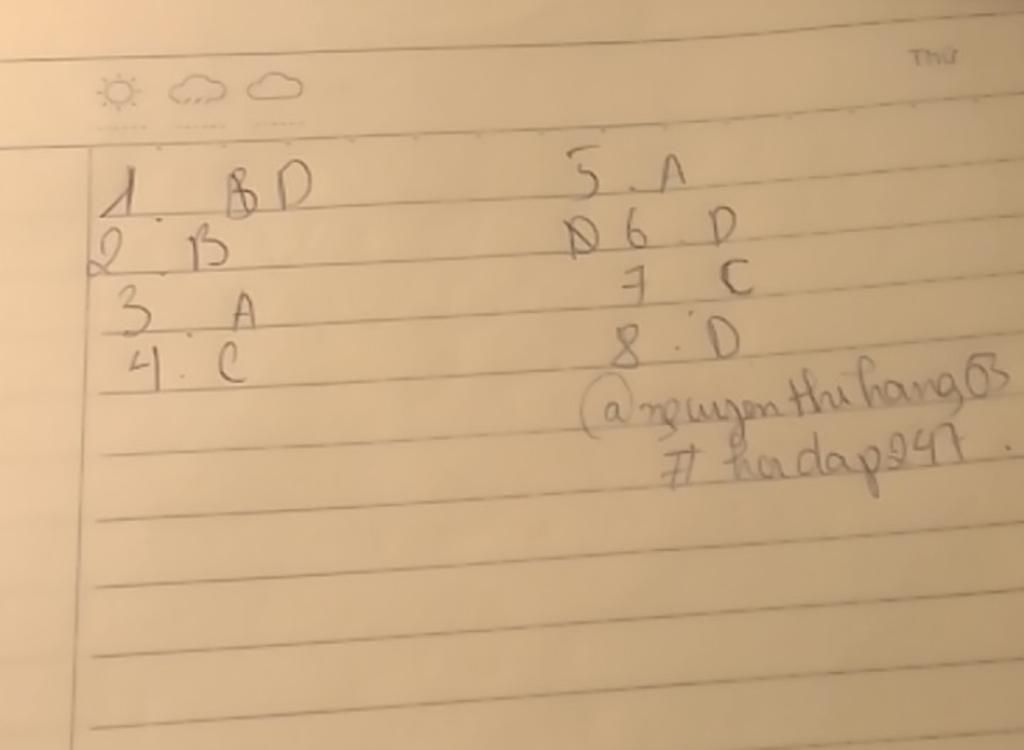 Thứ
1. D
2 B
3. A
4. C
5. A
6. D
7 C
8. D
@nguyenthihang03
#hadap247.